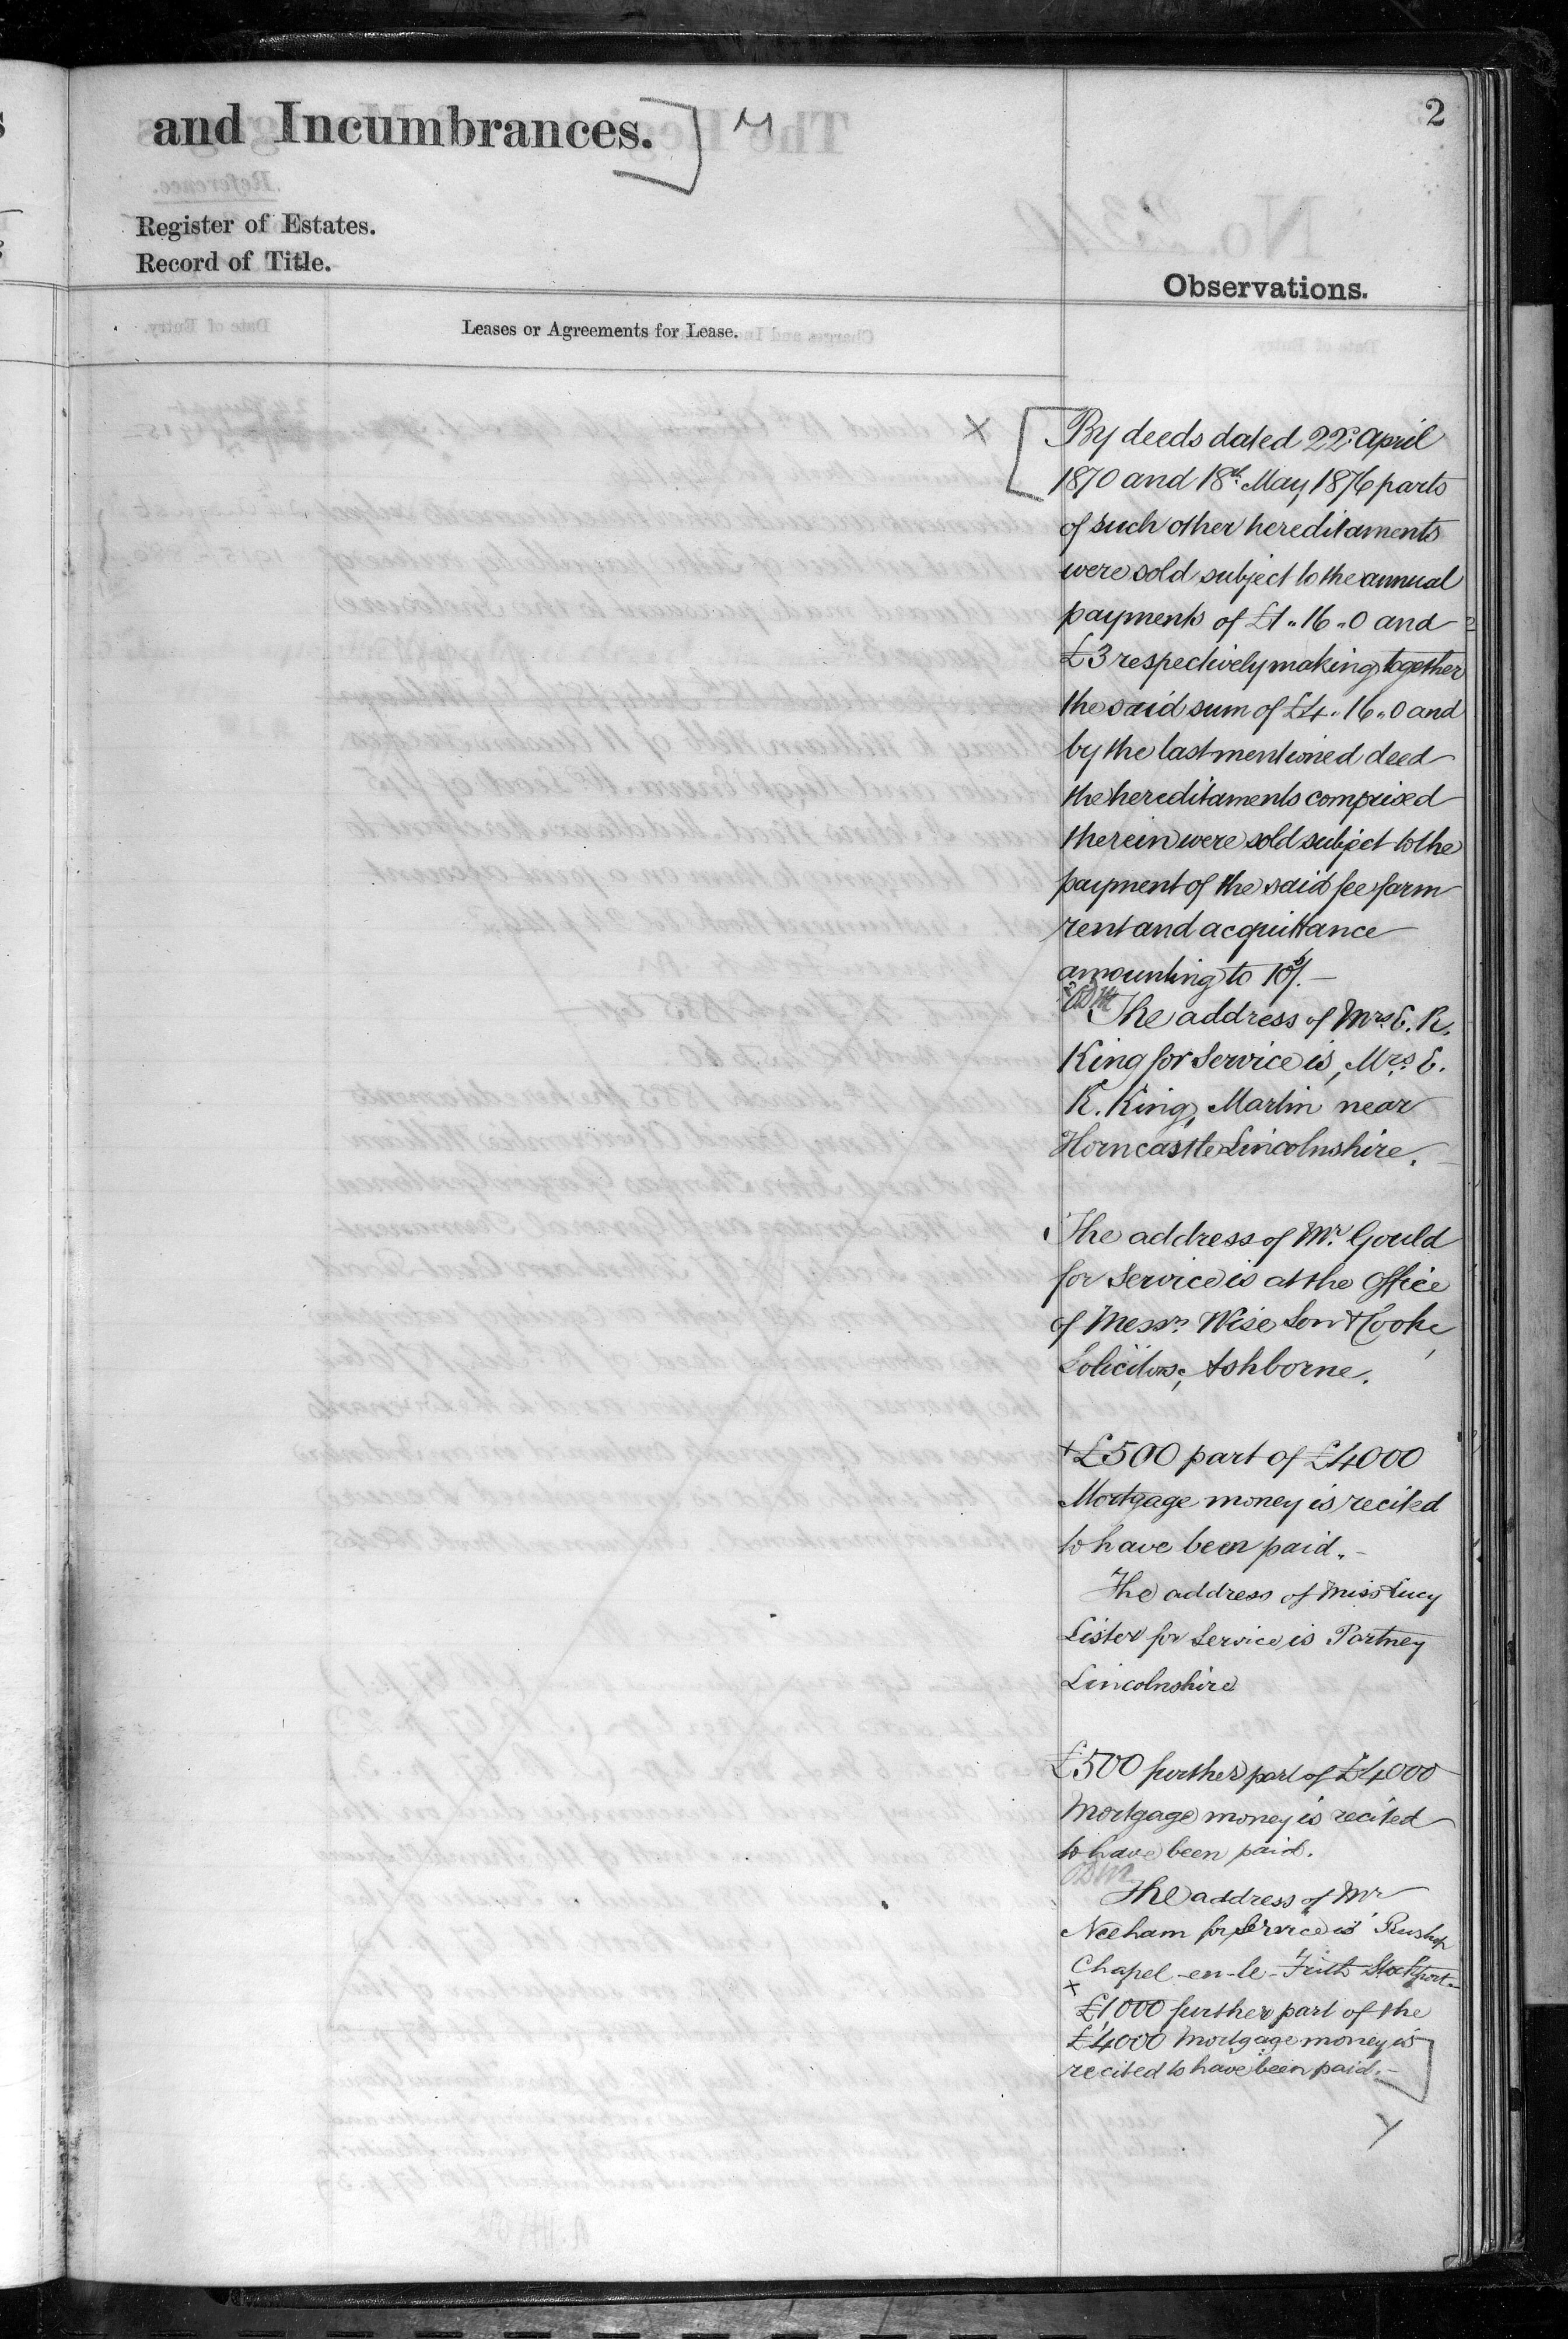 2
and Incumbrances.
Register of Estates.
Record of Title.
Observations.
Leases or Agreements for Lease.
By deeds dated 22nd April
1870 and 18th May 1876 parts
of such other hereditaments
were sold subject to the annual
payments of £1..16..0 and
£3 respectively making together
the said sum of £4..16..0 and
by the last mentioned deed
the hereditaments comprised
therein were sold subject to the
payment of the said fee farm
rent and acquittance
amounting to 10s/.
The address of Mrs. E. R.
King for Service is, Mrs. E.
R. King, Martin near
Horncastle Lincolnshire.
The address of Mr. Gould
for Service is at the Office
of Messrs. Wise Son & Cooke,
Solicitors, Ashborne.
+£500 part of £4000
Mortgage money is recited
to have been paid.
The address of Miss Lucy
Lister for Service is Partney
Lincolnshire
£500 further part of £4000
Mortgage money is recited
to have been paid.
The address of Mr
Neeham for Service is Rushop
Chapel-en-le-Frith Stockport
x
£1,000 further part of the
£4000 Mortgage money is
recited to have been paid.